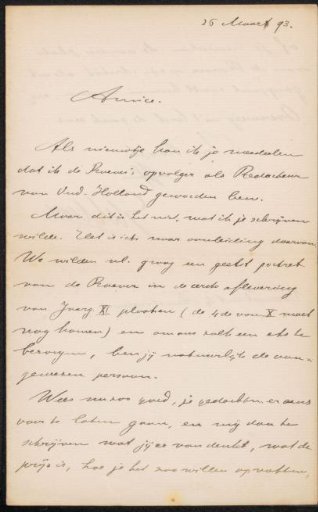 26 Maart 93.
Amice.
Als nieuwtje kan ik je mededeelen
dat ik de opvolger als Redacteur
van Ned. Holland geworden ben.
Maar dit is het niet, wat ik je schrijven
wilde. Het is iets naar aanleiding daarvan.
We wilden nl. graag een geëtst portret
van de Roever in de eerste aflevering
van Jaarg. XI plaatsen (de 4de van X moet
nog komen) en om ons zulk een ets te
bezorgen, ben jij natuurlijk de aan-
gewezen persoon.
Wees nu zoo goed, je gedachten er eens
voor te laten gaan, en mij dan te
schrijven wat jij er van denkt, wat de
prijs is, hoe je het zou willen opvatten,